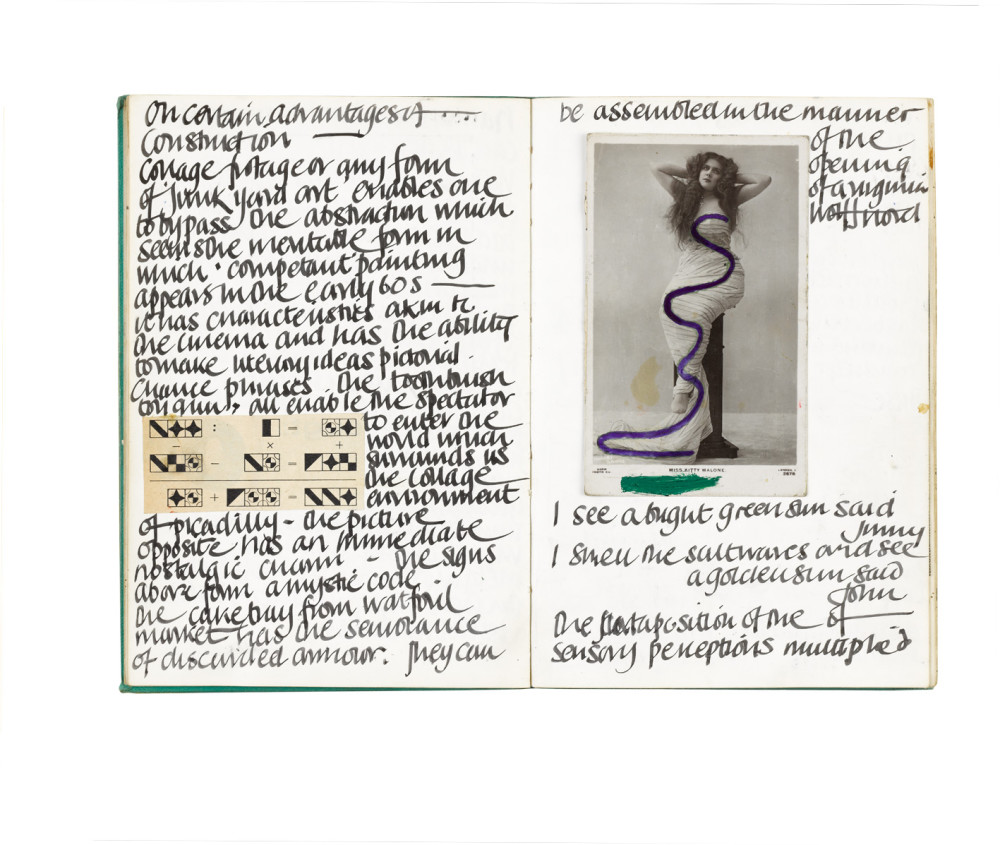 On certain advantages of ....
Construction
Collage potage or any form
of junk yard art enables one
to bypass the abstraction which
seems the inevitable form in
which competant painting
appears in the early 60s —
it has characteristics akin to
the cinema and has the ability
to make literary ideas pictorial.
Chance phrases the toothbrush
ton gun, all enable the spectator
to enter the
world which
surrounds us
the collage
environment
of picadilly - the picture
opposite has an immediate
nostalgic charm - the signs
above form a mystic code
the cake tray from watford
market has the semblance
of discarded armour. They can
be assembled in the manner
of the
opening
of a virginia
woolf novel
MISS KITTY MALONE.
I see a bright green sun said
Jinny
I smell the saltwaves and see
a golden sun said
John
the juxtaposition of the of
sensory perceptions multiplied